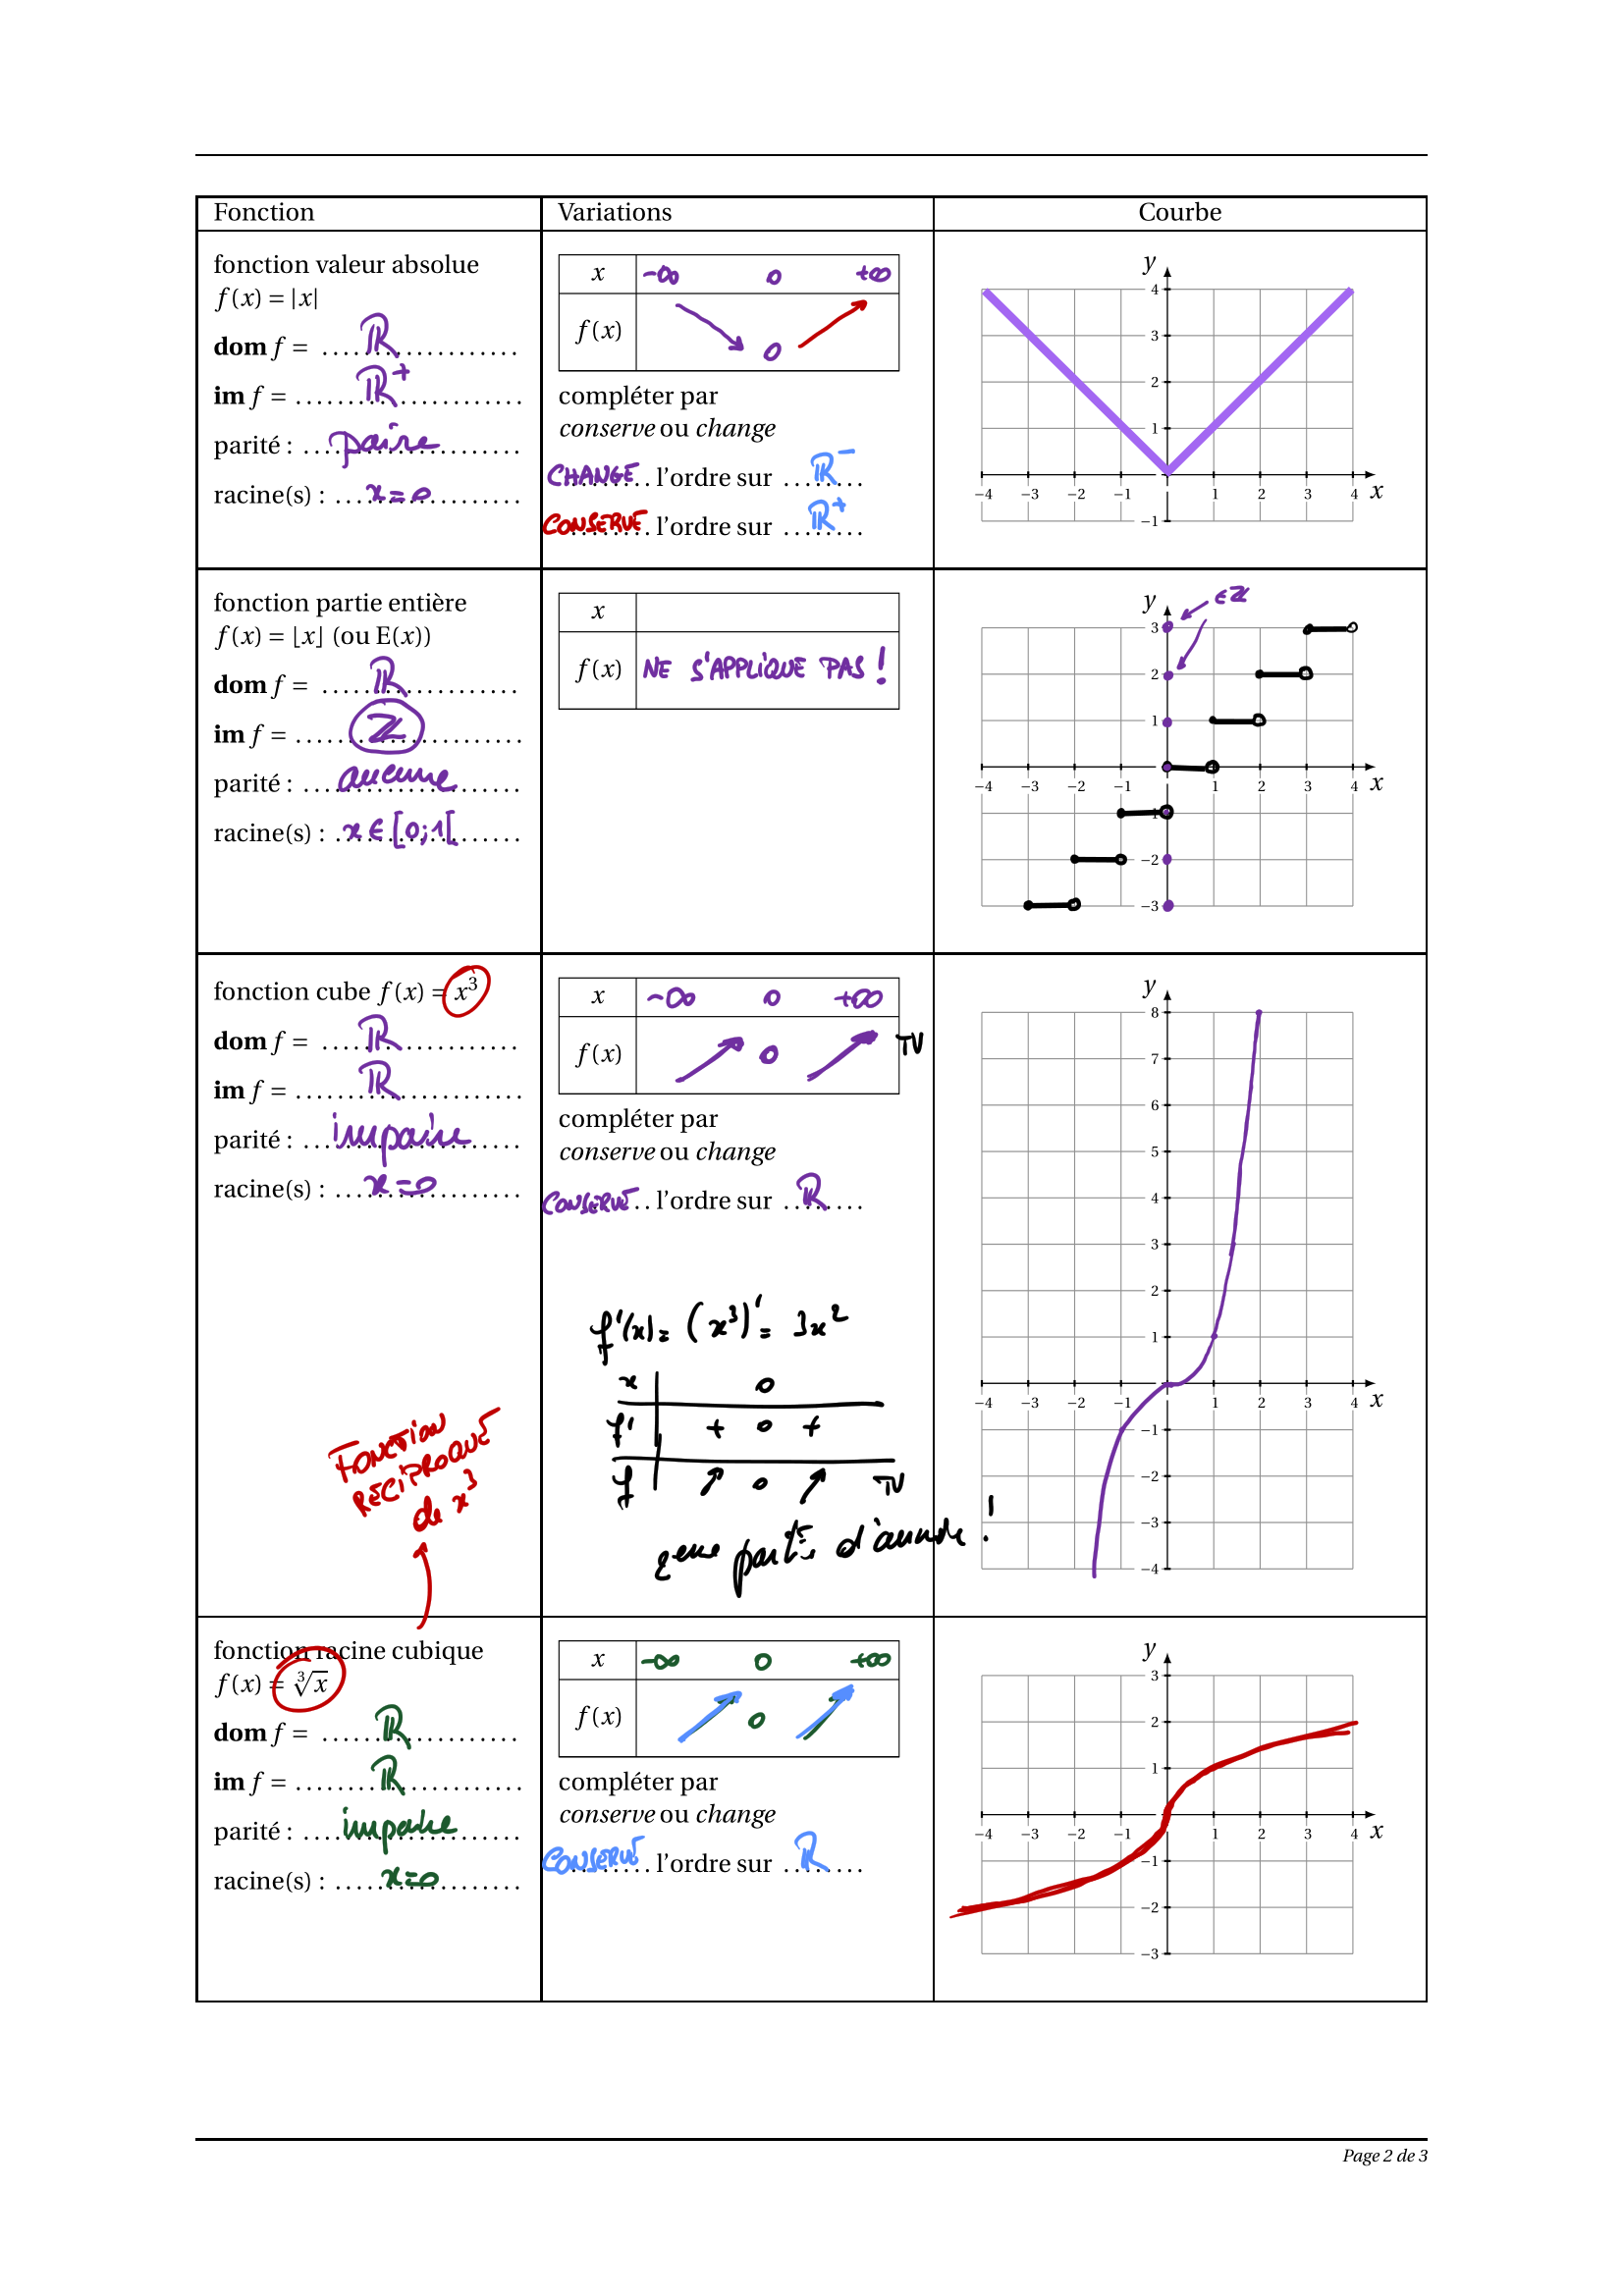 Fonction Variations Courbe
fonction valeur absolue
f(x) = |x|
dom f = ℝ
im f = ℝ⁺
parité : paire
racine(s) : x = 0
x −∞ 0 +∞
f(x) ↘ 0 ↗
compléter par
conserve ou change
CHANGE l'ordre sur ℝ⁻
CONSERVE l'ordre sur ℝ⁺
y
4
3
2
1
−4 −3 −2 −1 1 2 3 4 x
−1
fonction partie entière
f(x) = ⌊x⌋ (ou E(x))
dom f = ℝ
im f = ℤ
parité : aucune
racine(s) : x ∈ [0;1[
x
f(x) NE S'APPLIQUE PAS !
y ∈ ℤ
3
2
1
−4 −3 −2 −1 1 2 3 4 x
−1
−2
−3
fonction cube f(x) = x³
dom f = ℝ
im f = ℝ
parité : impaire
racine(s) : x = 0
x −∞ 0 +∞
f(x) ↗ 0 ↗ TV
compléter par
conserve ou change
CONSERVE l'ordre sur ℝ
f'(x) = (x³)' = 3x²
x 0
f' + 0 +
f ↗ 0 ↗ TV
2eme partie d'année !
FONCTION
RÉCIPROQUE
de x³
y
8
7
6
5
4
3
2
1
−4 −3 −2 −1 1 2 3 4 x
−1
−2
−3
−4
fonction racine cubique
f(x) = ∛x
dom f = ℝ
im f = ℝ
parité : impaire
racine(s) : x = 0
x −∞ 0 +∞
f(x) ↗ 0 ↗
compléter par
conserve ou change
CONSERVE l'ordre sur ℝ
y
3
2
1
−4 −3 −2 −1 1 2 3 4 x
−1
−2
−3
Page 2 de 3